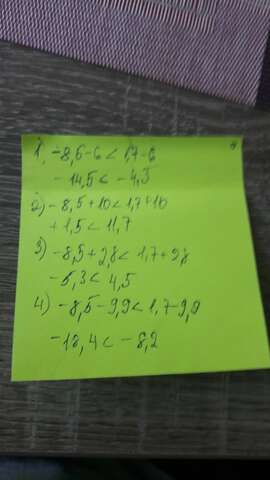 1) -8,5-6 < 1,7-6
-14,5 < -4,3
2) -8,5+10 < 1,7+10
+1,5 < 11,7
3) -8,5+2,8 < 1,7+2,8
-5,3 < 4,5
4) -8,5-9,9 < 1,7-9,9
-18,4 < -8,2